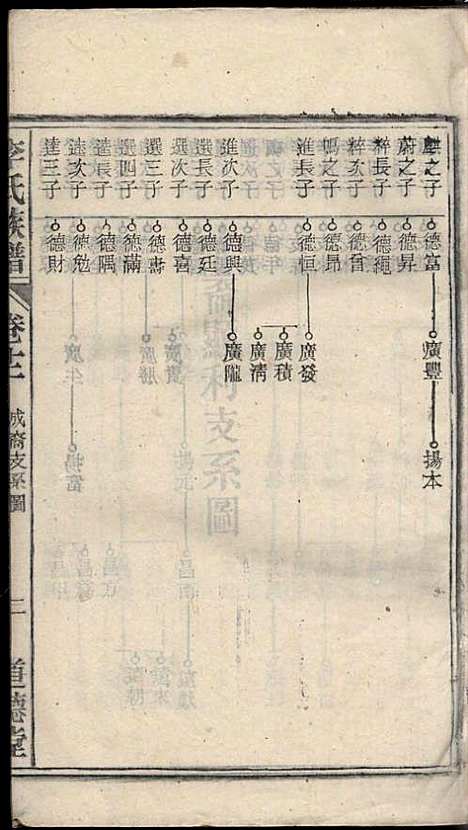 之子 德富 廣豐 揚本
蔚之子 德昇
粹長子 德繩
粹次子 德
鳴之子 德昂
進長子 德恒 廣發
廣積
廣清
進次子 德興 廣隴
選長子 德廷
選次子 德喜
選三子 德壽
選四子 德滿
達長子 德隅
達次子 德勉
達三子 德財
李氏族譜 卷十一 成裔支系圖 二 道德堂